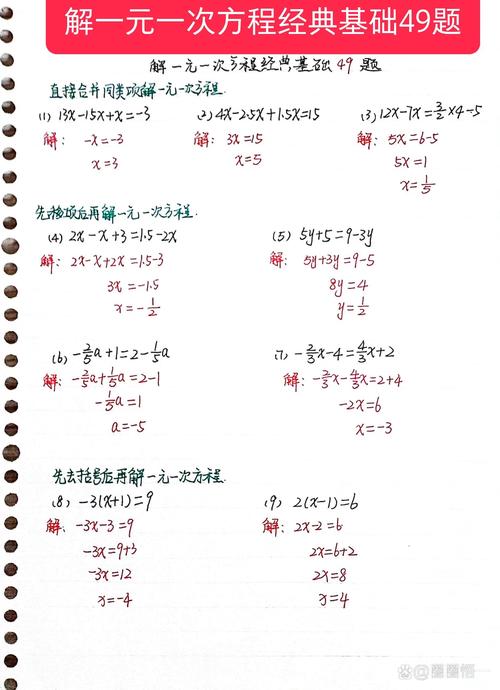 解一元一次方程经典基础49题
解一元一次方程经典基础49题
直接合并同类项解一元一次方程.
(1) 13x-15x+x=-3 (2) 4x-2.5x+1.5x=15 (3) 12x-7x=3/2×4-5
解: -x=-3 解: 3x=15 解: 5x=6-5
x=3 x=5 5x=1
x=1/5
先移项后再解一元一次方程.
(4) 2x-x+3=1.5-2x (5) 5y+5=9-3y
解: 2x-x+2x=1.5-3 解: 5y+3y=9-5
3x=-1.5 8y=4
x=-1/2 y=1/2
(6) -2/5a+1=2-1/5a (7) -2/3x-4=4/3x+2
解: -2/5a+1/5a=2-1 解: -2/3x-4/3x=2+4
-1/5a=1 -2x=6
a=-5 x=-3
先去括号后再解一元一次方程.
(8) -3(x+1)=9 (9) 2(x-1)=6
解: -3x-3=9 解: 2x-2=6
-3x=9+3 2x=6+2
-3x=12 2x=8
x=-4 x=4